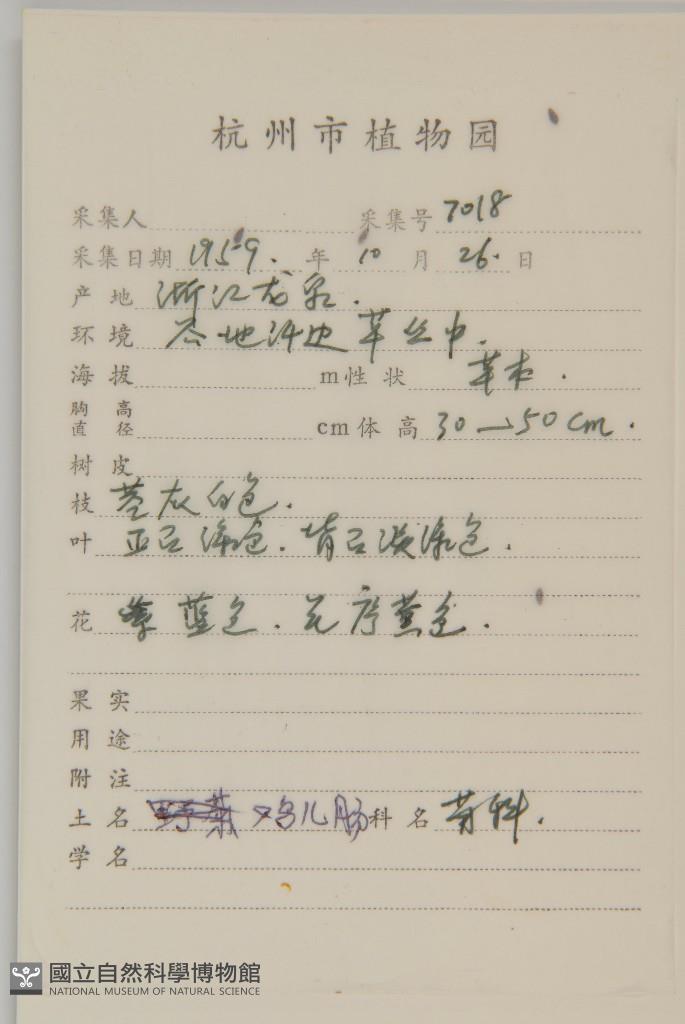 杭州市植物园
采集人 采集号 7018
采集日期 1959. 年 10 月 26. 日
产地 浙江龙泉.
环境 谷地沟边草丛中.
海拔 m性状 草本.
胸高直径 cm体高 30—50cm.
树皮
枝 茎灰白色.
叶 正面绿色.背面淡绿色.
花 蓝色.花序黄色.
果实
用途
附注
土名 野菊 鸡儿肠 科名 菊科.
学名
國立自然科學博物館
NATIONAL MUSEUM OF NATURAL SCIENCE